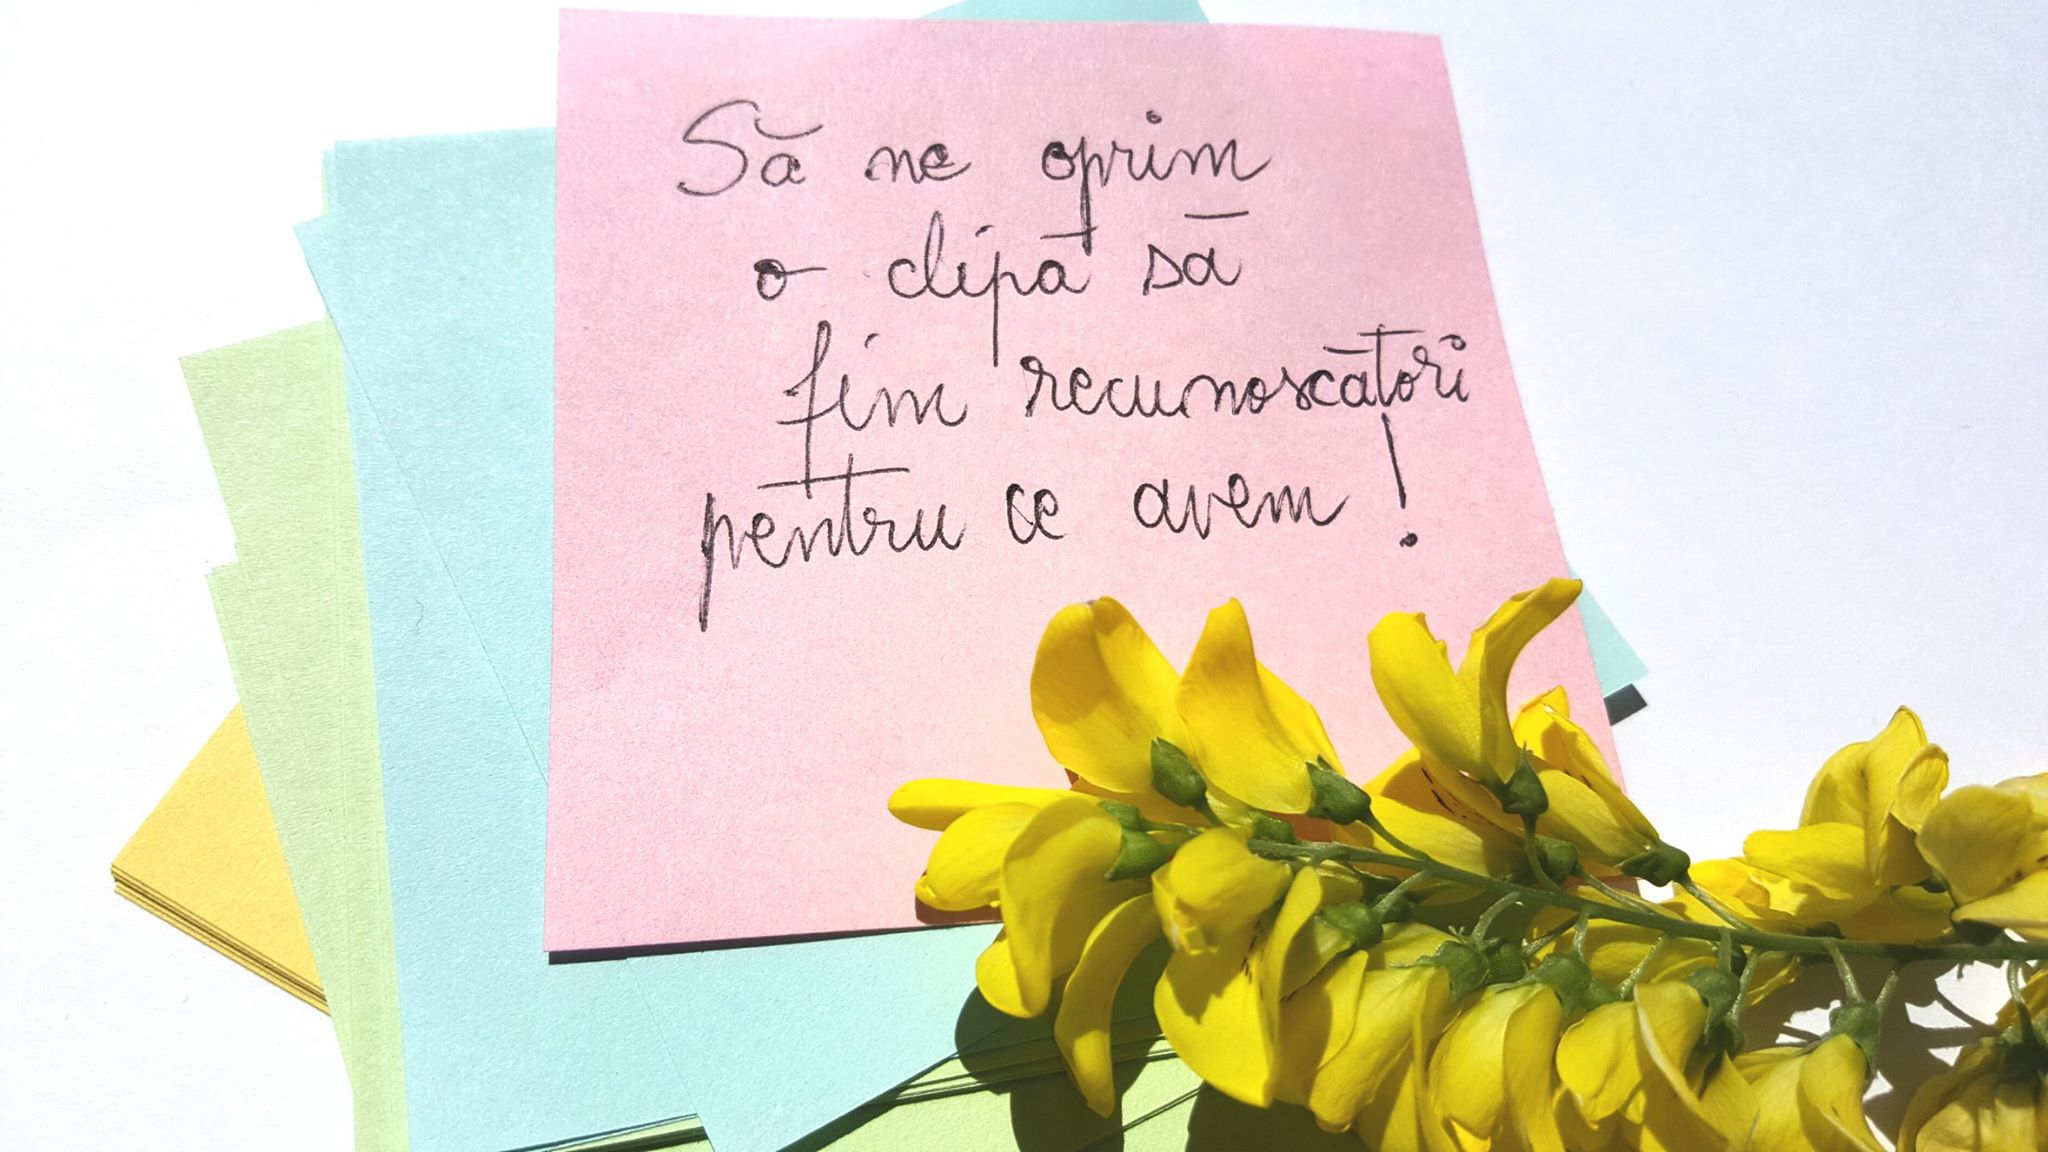 Să ne oprim
o clipă să
fim recunoscători
pentru ce avem!